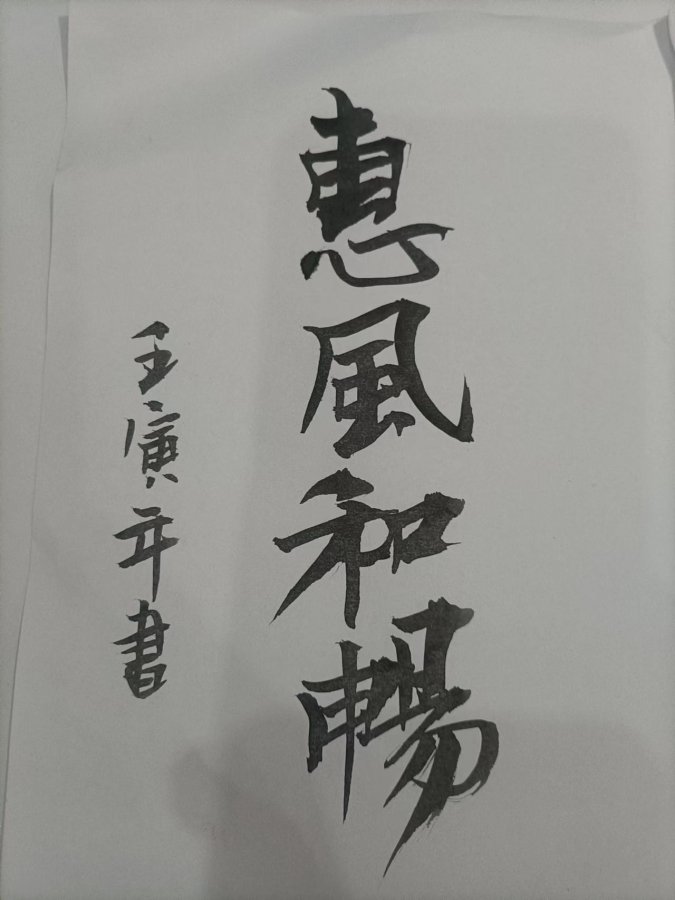 惠風和暢
壬寅年書